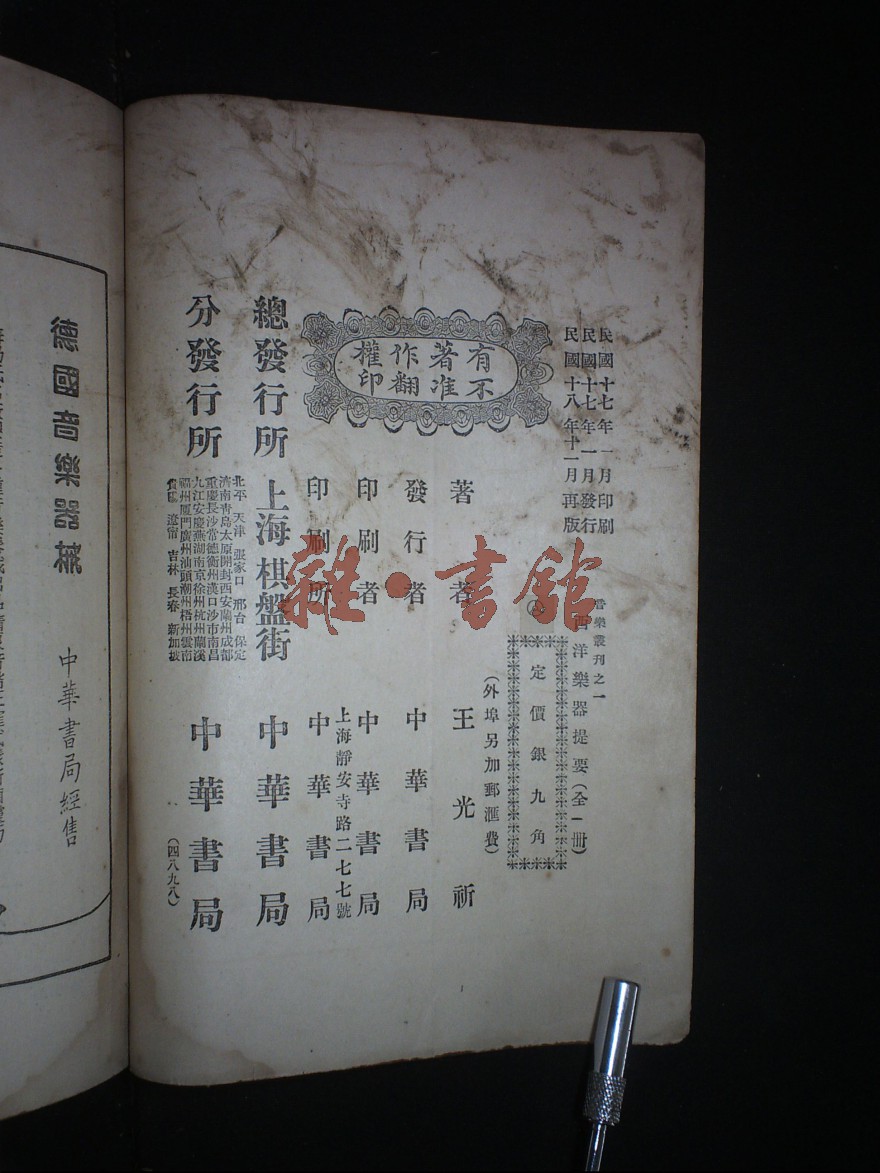 民國十七年一月印刷
民國十七年一月發行
民國十八年十一月再版
音樂叢刊之一
西洋樂器提要（全一冊）
定價銀九角
（外埠另加郵匯費）
有著作權
不准翻印
著者 王光祈
發行者 中華書局
印刷者 中華書局
上海靜安寺路二七七號
印刷所 中華書局
總發行所 上海棋盤街 中華書局
分發行所
北平 天津 張家口 邢台 保定
濟南青島太原開封西安蘭州成都
重慶長沙常德衡州漢口沙市南昌
九江安慶蕪湖南京徐州杭州蘭溪
福州厦門廣州汕頭潮州梧州雲南
遼寧 吉林 長春 新加坡
中華書局
（四八九八）
德國音樂器械
中華書局經售
雜·書館